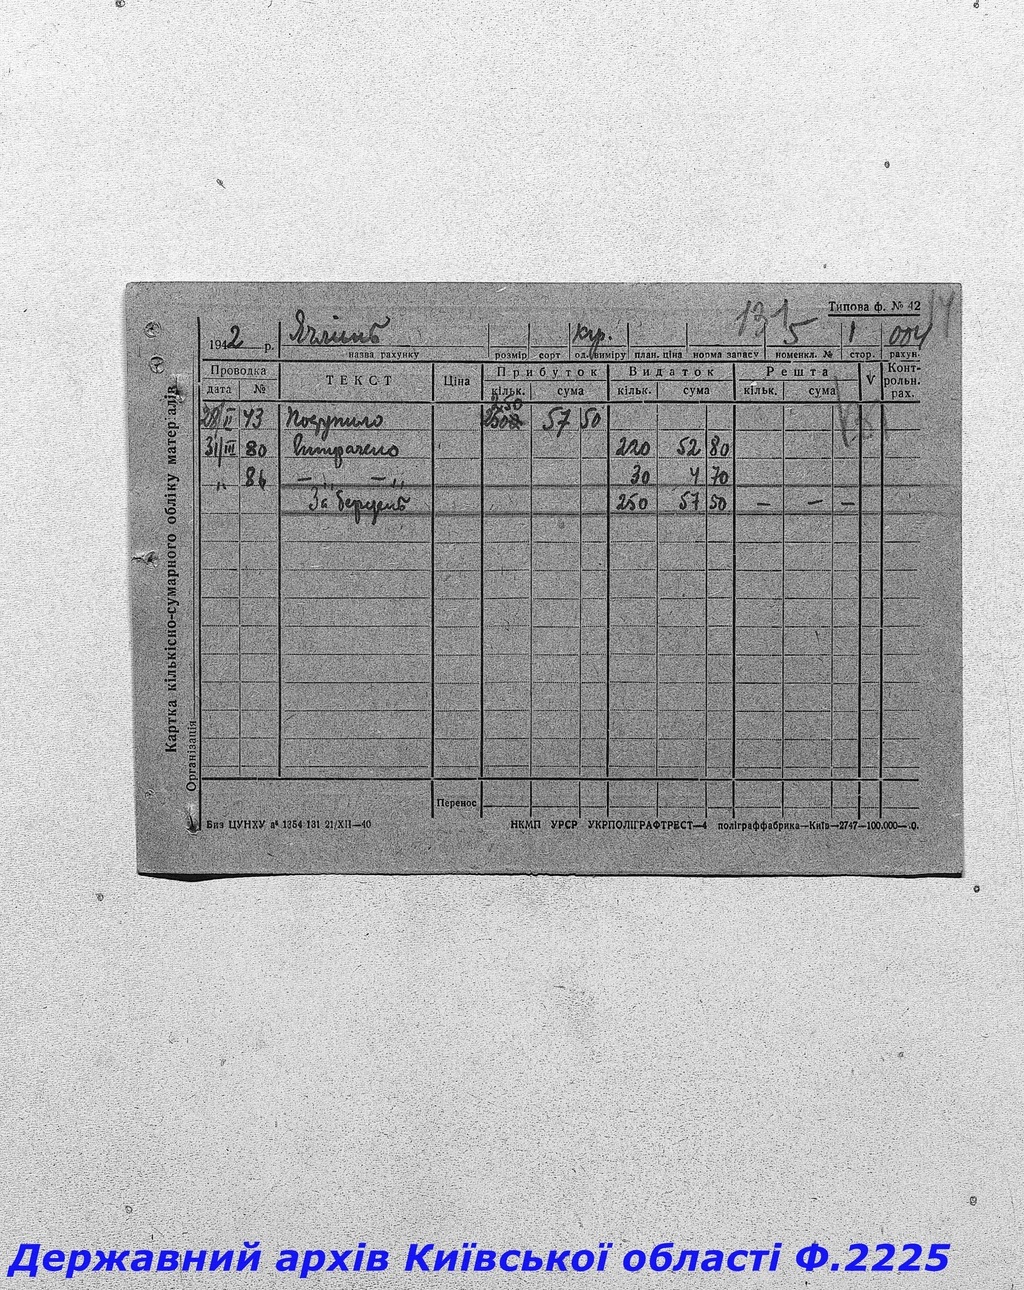 Типова ф. № 42
1942 р. Ячмінь кгр. 5 1 004
назва рахунку розмір сорт од. виміру план. ціна норма запасу номенкл. № стор. рахун.
Проводка ТЕКСТ Ціна Прибуток Видаток Решта V Контрольн. рах.
дата № кільк. сума кільк. сума кільк. сума
250
28/II 43 Поступило 57 50
31/III 80 Витрачено 220 52 80
„ 84 — „ — „ 30 4 70
За березень 250 57 50 — — —
Перенос
Картка кількісно-сумарного обліку матеріалів
Організація
Вид ЦУНХУ а⁴ 1354 131 21/XII—40 НКМП УРСР УКРПОЛІГРАФТРЕСТ—4 поліграффабрика—Київ—2747—100.000—
Державний архів Київської області Ф.2225